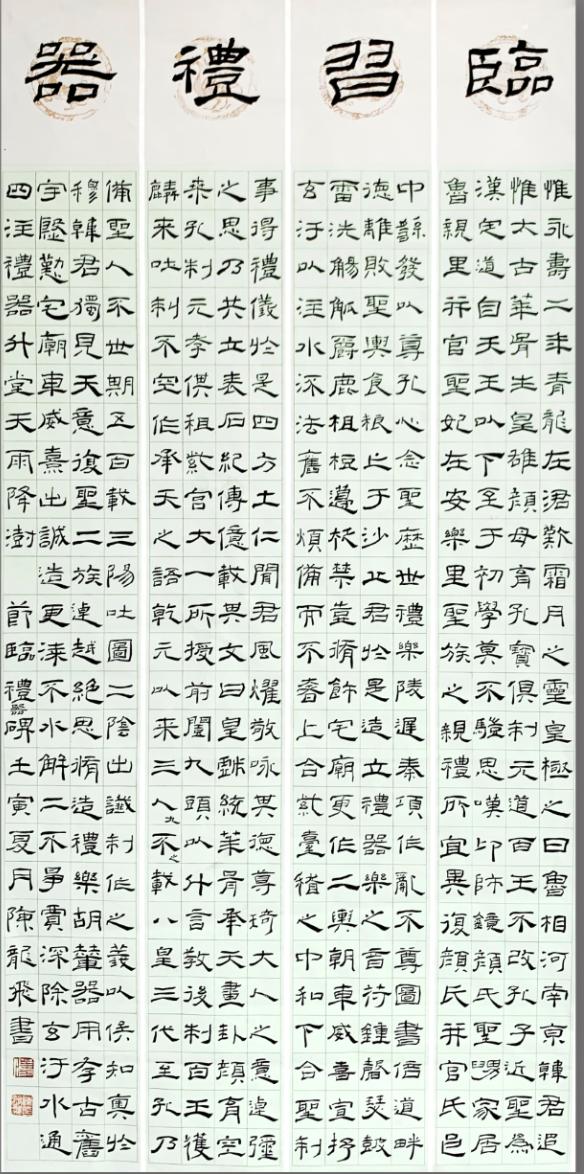 臨習禮器
惟永壽二年青龍在涒歎霜月之靈皇極之日魯相河南京韓君追
惟大古華胥生皇雄顏母育孔寶俱制元道百王不改孔子近聖為
漢定道自天王以下至于初學莫不驥思嘆卬師鏡顏氏聖舅家居
魯親里并官聖妃在安樂里聖族之親禮所宜異復顏氏并官氏邑
中繇發以尊孔心念聖歷世禮樂陵遲秦項作亂不尊圖書倍道畔
德離敗聖輿食粮亡于沙丘君於是造立禮器樂之音符鍾磬瑟鼓
雷洗觴觚爵鹿柤梪籩柉禁壺脩飾宅廟更作二輿朝車威熹宣抒
玄汙以注水流法舊不煩備而不奢上合紫臺稽之中和下合聖制
事得禮儀於是四方土仁聞君風燿敬咏其德尊琦大人之意逴彌
之思乃共立表石紀傳億載其文曰皇戲統華胥承天畫卦顏育空
来孔制元孝俱祖紫宮大一所授前闓九頭以什言教後制百王獲
麟來吐制不空作承天之語乾元以来三八九不之載八皇三代至孔乃
備聖人不世期五百載三陽吐圖二陰出讖制作之義以俟知奧於
穆韓君獨見天意復聖二族逴越絕思脩造禮樂胡輦器用存古舊
宇慇懃宅廟車威熹出誠造更漆不水解工不爭賈深除玄汙水通
四注禮器升堂天雨降澍 節臨禮器碑壬寅夏月陳龍飛書